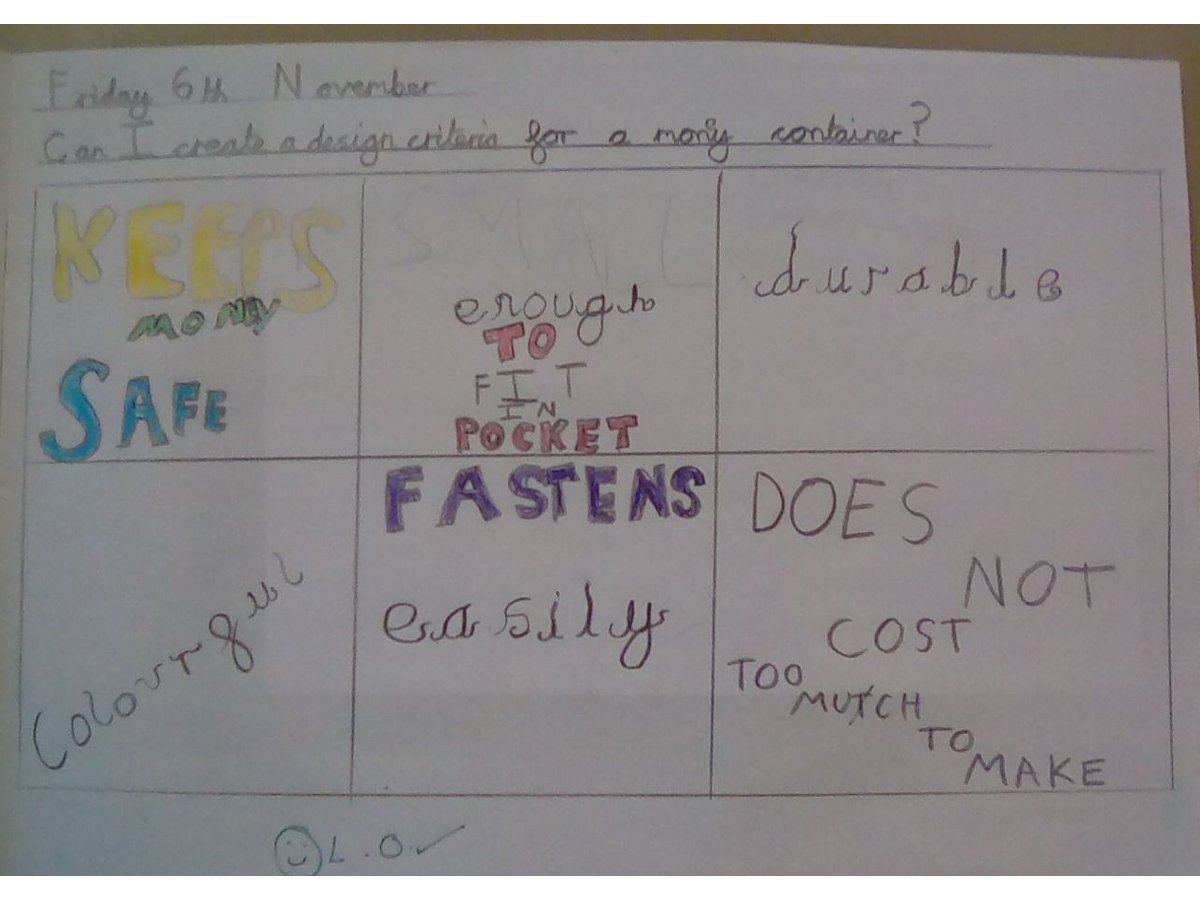 Friday 6th November
Can I create a design criteria for a money container?
KEEPS
MONEY
SAFE
SMALL
enough
TO
FIT
IN
POCKET
durable
Colourful
FASTENS
easily
DOES
NOT
COST
TOO
MUTCH
TO
MAKE
L.O.✓